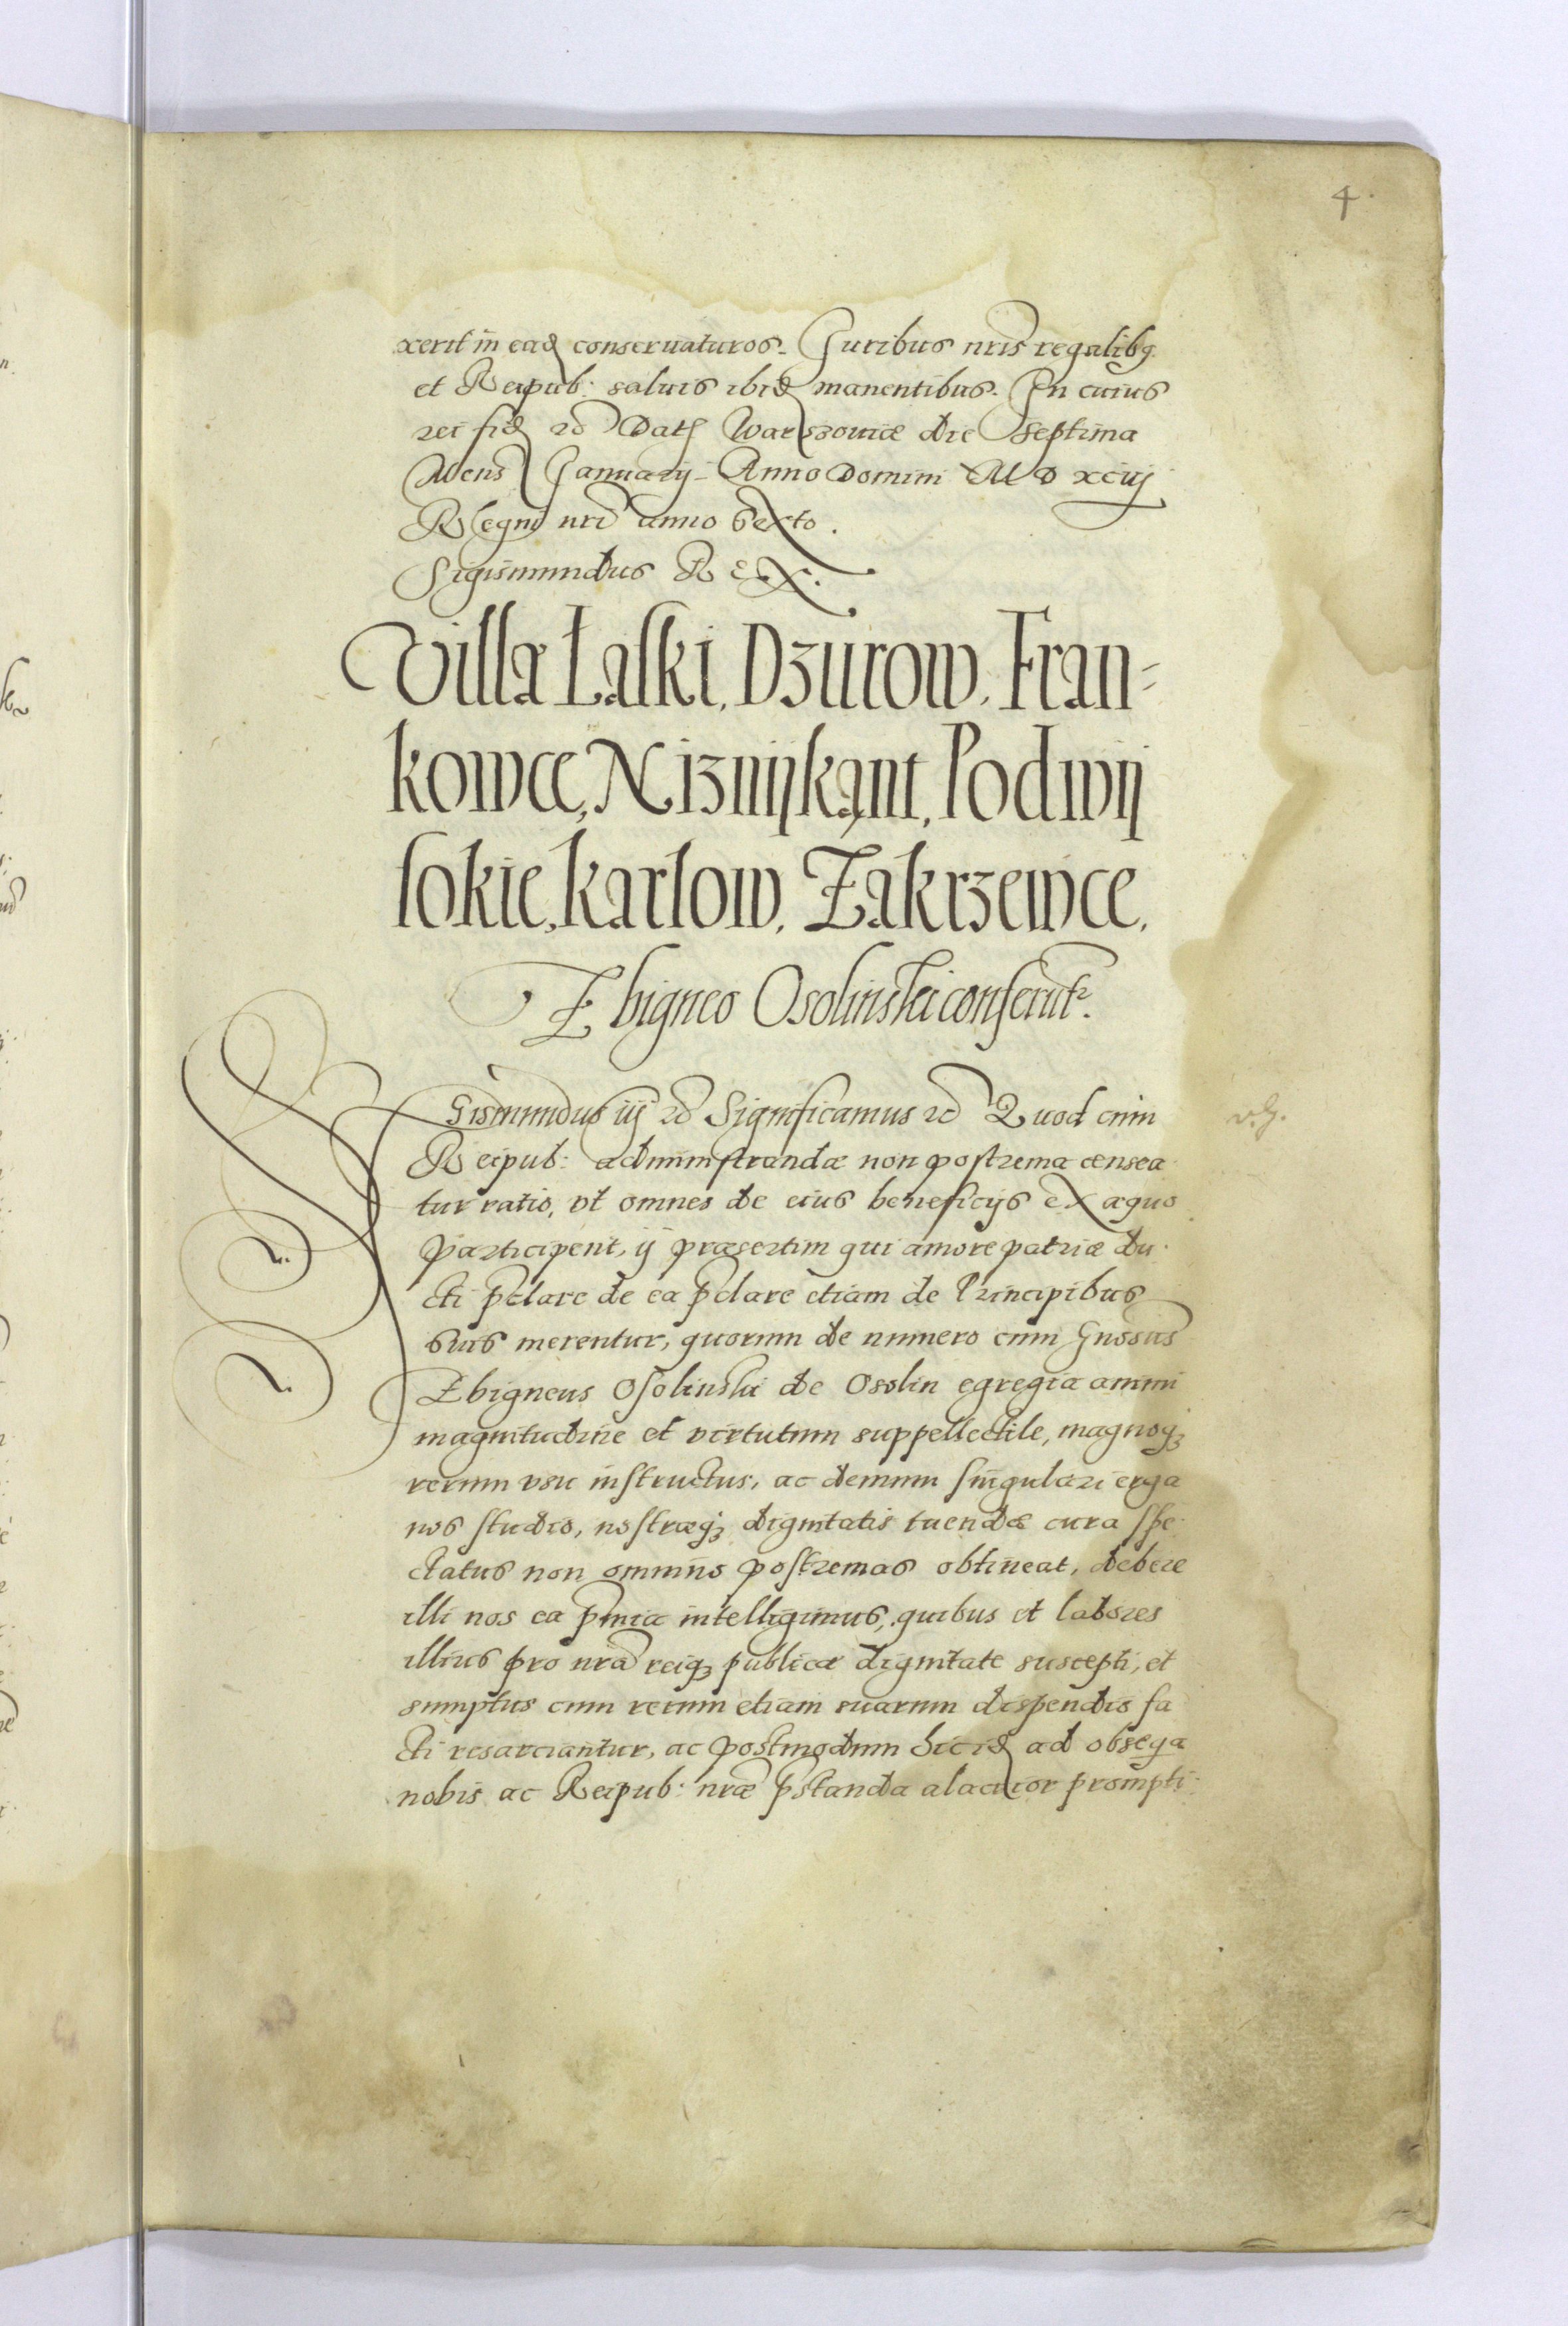 4.
xerit in ead conseruaturos. Iuribus nris regalibq
et Reipub: saluis ibid manentibus. In cuius
rei fid etc Dat Warszouiæ die septima
Mens Januarij. Anno Domini M D xciij
Regni nri anno sexto.
Sigismundus Rex.
Villæ Laski, Dzurow, Fran-
kowce, Niznijkąnt, Podwij
sokie, Karlow, Zakrzewce,
Zbigneo Osolinski conferunt.
Sigismundus iij etc Significamus etc Quod cum v. G.
Reipub: administrandæ non postrema censea
tur ratio, vt omnes de eius beneficijs ex æquo
participent, ij præsertim qui amore patriæ du-
cti pclare de ea pclare etiam de Principibus
suis merentur, quorum de numero cum Gnosus
Zbigneus Osolinski de Osolin egregia animi
magnitudine et virtutum suppellectile, magnoq;
rerum vsu instructus, ac demum singulari erga
nos studio, nostræq; dignitatis tuendæ cura spe-
ctatus non omnino postremas obtineat, debere
illi nos ea pmia intelligimus, quibus et labores
illius pro nra reiq; publicæ dignitate suscepti, et
sumptus cum rerum etiam suarum dispendio fa
cti resarciantur, ac postmodum hic id ad obseqa
nobis ac Reipub: nræ pstanda alacrior prompti-